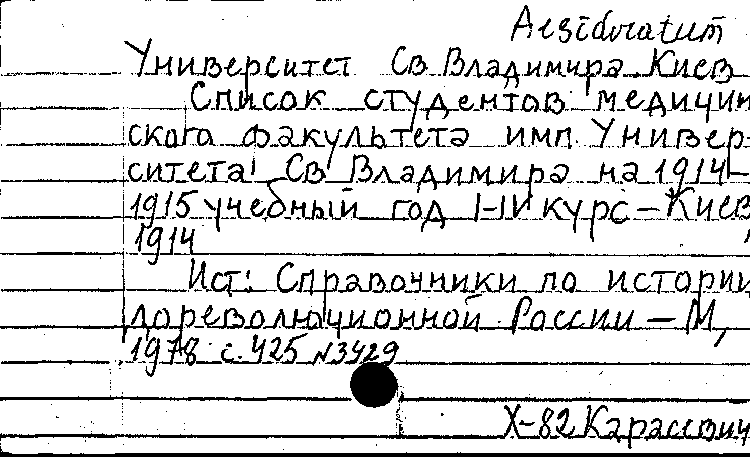 Aesideratum
Университет Св Владимира. Киев
Список студентов медицин
ского факультета имп. Универ-
ситета Св Владимира на 1914-
1915 учебный год I-IV курс - Киев,
1914
Ист: Справочники по истории
дореволюционной России - М,
1978 с. 425 №3429
X-82 Карасевич